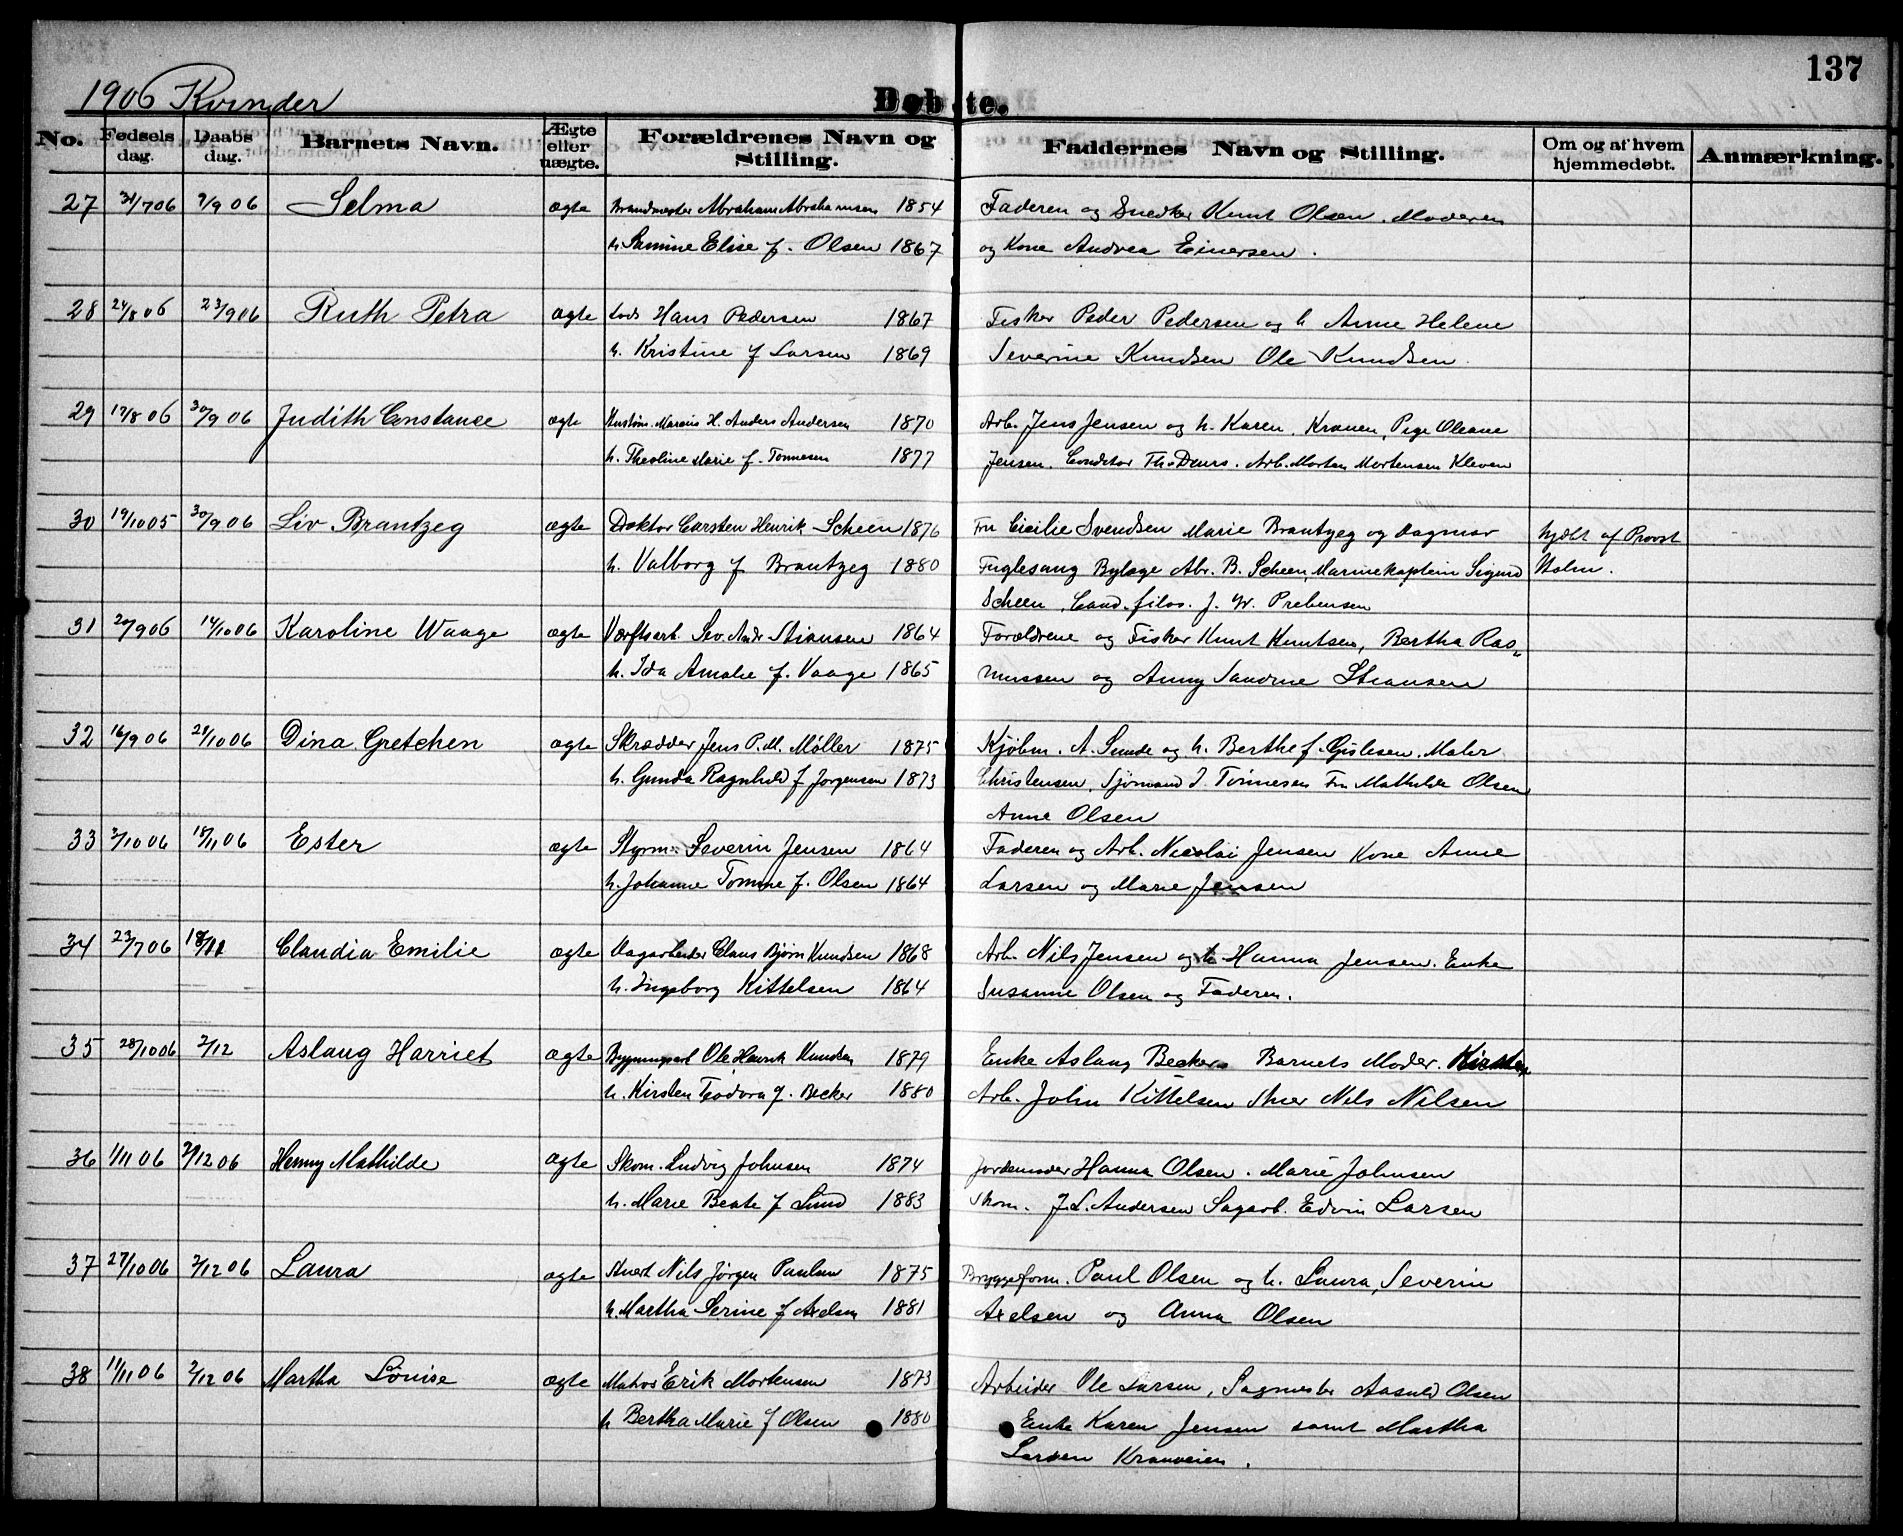 137
1906 Kvinder
Døbte.
No. Fødsels dag. Daabs dag. Barnets Navn. Ægte eller uægte. Forældrenes Navn og Stilling. Faddernes Navn og Stilling. Om og af hvem hjemmedøbt. Anmærkning.
27 31/7 06 9/9 06 Selma ægte Brandmester Abraham Abrahamsen 1854 Faderen og Snedker Knut Olsen. Moderen
h. Samine Elise f. Olsen 1867 og Kone Andrea Einersen.
28 24/8 06 23/9 06 Ruth Petra ægte Lods Hans Pedersen 1867 Fisker Peder Pedersen og h. Anne Helene
h. Kristine f Larsen 1869 Severine Knudsen Ole Knudsen
29 17/8 06 30/9 06 Judith Constance ægte Marius H. Anders Andersen 1870 Arb. Jens Jensen og h. Karen, Kranen, Pige Oleane
h. Theoline Marie f. Tønnesen 1877 Jensen. Conditor Arb. Morten Mortensen Kleven
30 19/10 05 30/9 06 Liv Brantzeg ægte Doktor Carsten Henrik Scheen 1876 Fru Cicilie Svendsen Marie Brantzeg og Dagmar hjdbt af Provst
h. Valborg f Brantzeg 1880 Fuglesang Bylæge Abr. B. Scheen, Marinekaptein Sigurd Holm.
Scheen, Cand. filos. J. W. Prebensen
31 2/9 06 14/10 06 Karoline Waage ægte Værftsarb. Sev. Andr Stiansen 1864 Forældrene og Fisker Knut Knutsen, Bertha Ras-
h. Ida Amalie f. Vaage 1865 mussen og Anny Sandrine Stiansen
32 16/9 06 21/10 06 Dina Gretchen ægte Skrædder Jens P. M. Møller 1875 Kjøbm. A. Sunde og h. Berthe f. Gislesen. Maler
h. Gunda Ragnhild f Jørgensen 1873 Christensen, Sjømand I. Tønnesen Fru Mathilde Olsen
Anne Olsen
33 2/10 06 18/11 06 Ester ægte Styrm. Severin Jensen 1864 Faderen og Arb. Nicolai Jensen Kone Anne
h. Johanne Tomine f. Olsen 1864 Larsen og Marie Jensen
34 23/7 06 18/11 Claudia Emilie ægte Claus Bjørn Knudsen 1868 Arb. Nils Jensen og h. Hanna Jensen. Enke
h. Ingeborg Kittelsen 1864 Susanne Olsen og Faderen.
35 28/10 06 2/12 Aslaug Harriet ægte Bygningsarb Ole Henrik Knudsen 1879 Enke Aslaug Becker Barnets Moder. Kirsten
h. Kirsten Teodora f. Becker 1880 Arb. John Kittelsen Nils Nilsen
36 1/11 06 2/12 06 Henny Mathilde ægte Skom. Ludvig Johnsen 1874 Jordemoder Hanna Olsen. Marie Johnsen
h. Marie Beate f Lund 1883 Skom. J. L. Andersen Sagarb. Edvin Larsen
37 27/10 06 2/12 06 Laura ægte Nils Jørgen Paulsen 1875 Bryggeform. Paul Olsen og h. Laura, Severin
h. Martha Serine f Axelsen 1881 Axelsen og Anna Olsen
38 11/11 06 2/12 06 Martha Louise ægte Matros Erik Mortensen 1873 Arbeider Ole Larsen, Sagmester Aasuld Olsen
h Bertha Marie f Olsen 1880 Enke Karen Jensen samt Martha
Larsen Kranveien.